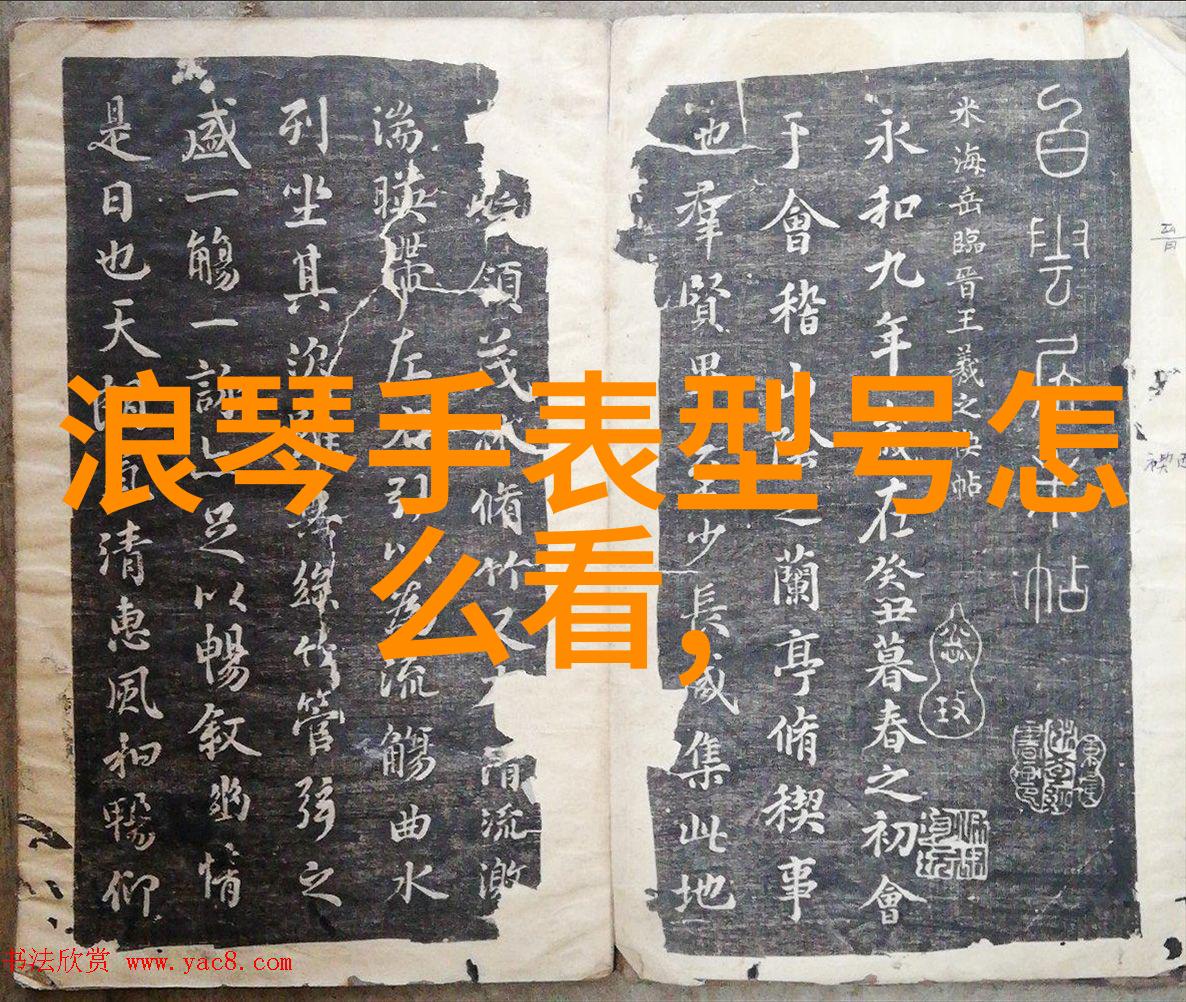 浪琴手表型号怎
么看,
白雲居米帖
米海岳臨晉王羲之禊帖
永和九年歲在癸丑暮春之初會
于會稽山陰之蘭亭脩稧事
也羣賢畢至少長咸集此地
峻領茂林脩竹又有清流激
湍暎帶左右引以為流觴曲水
列坐其次雖無絲竹管弦之
盛一觴一詠亦足以暢叙幽情
是日也天朗氣清惠風和暢仰
书法欣赏 www.yac8.com